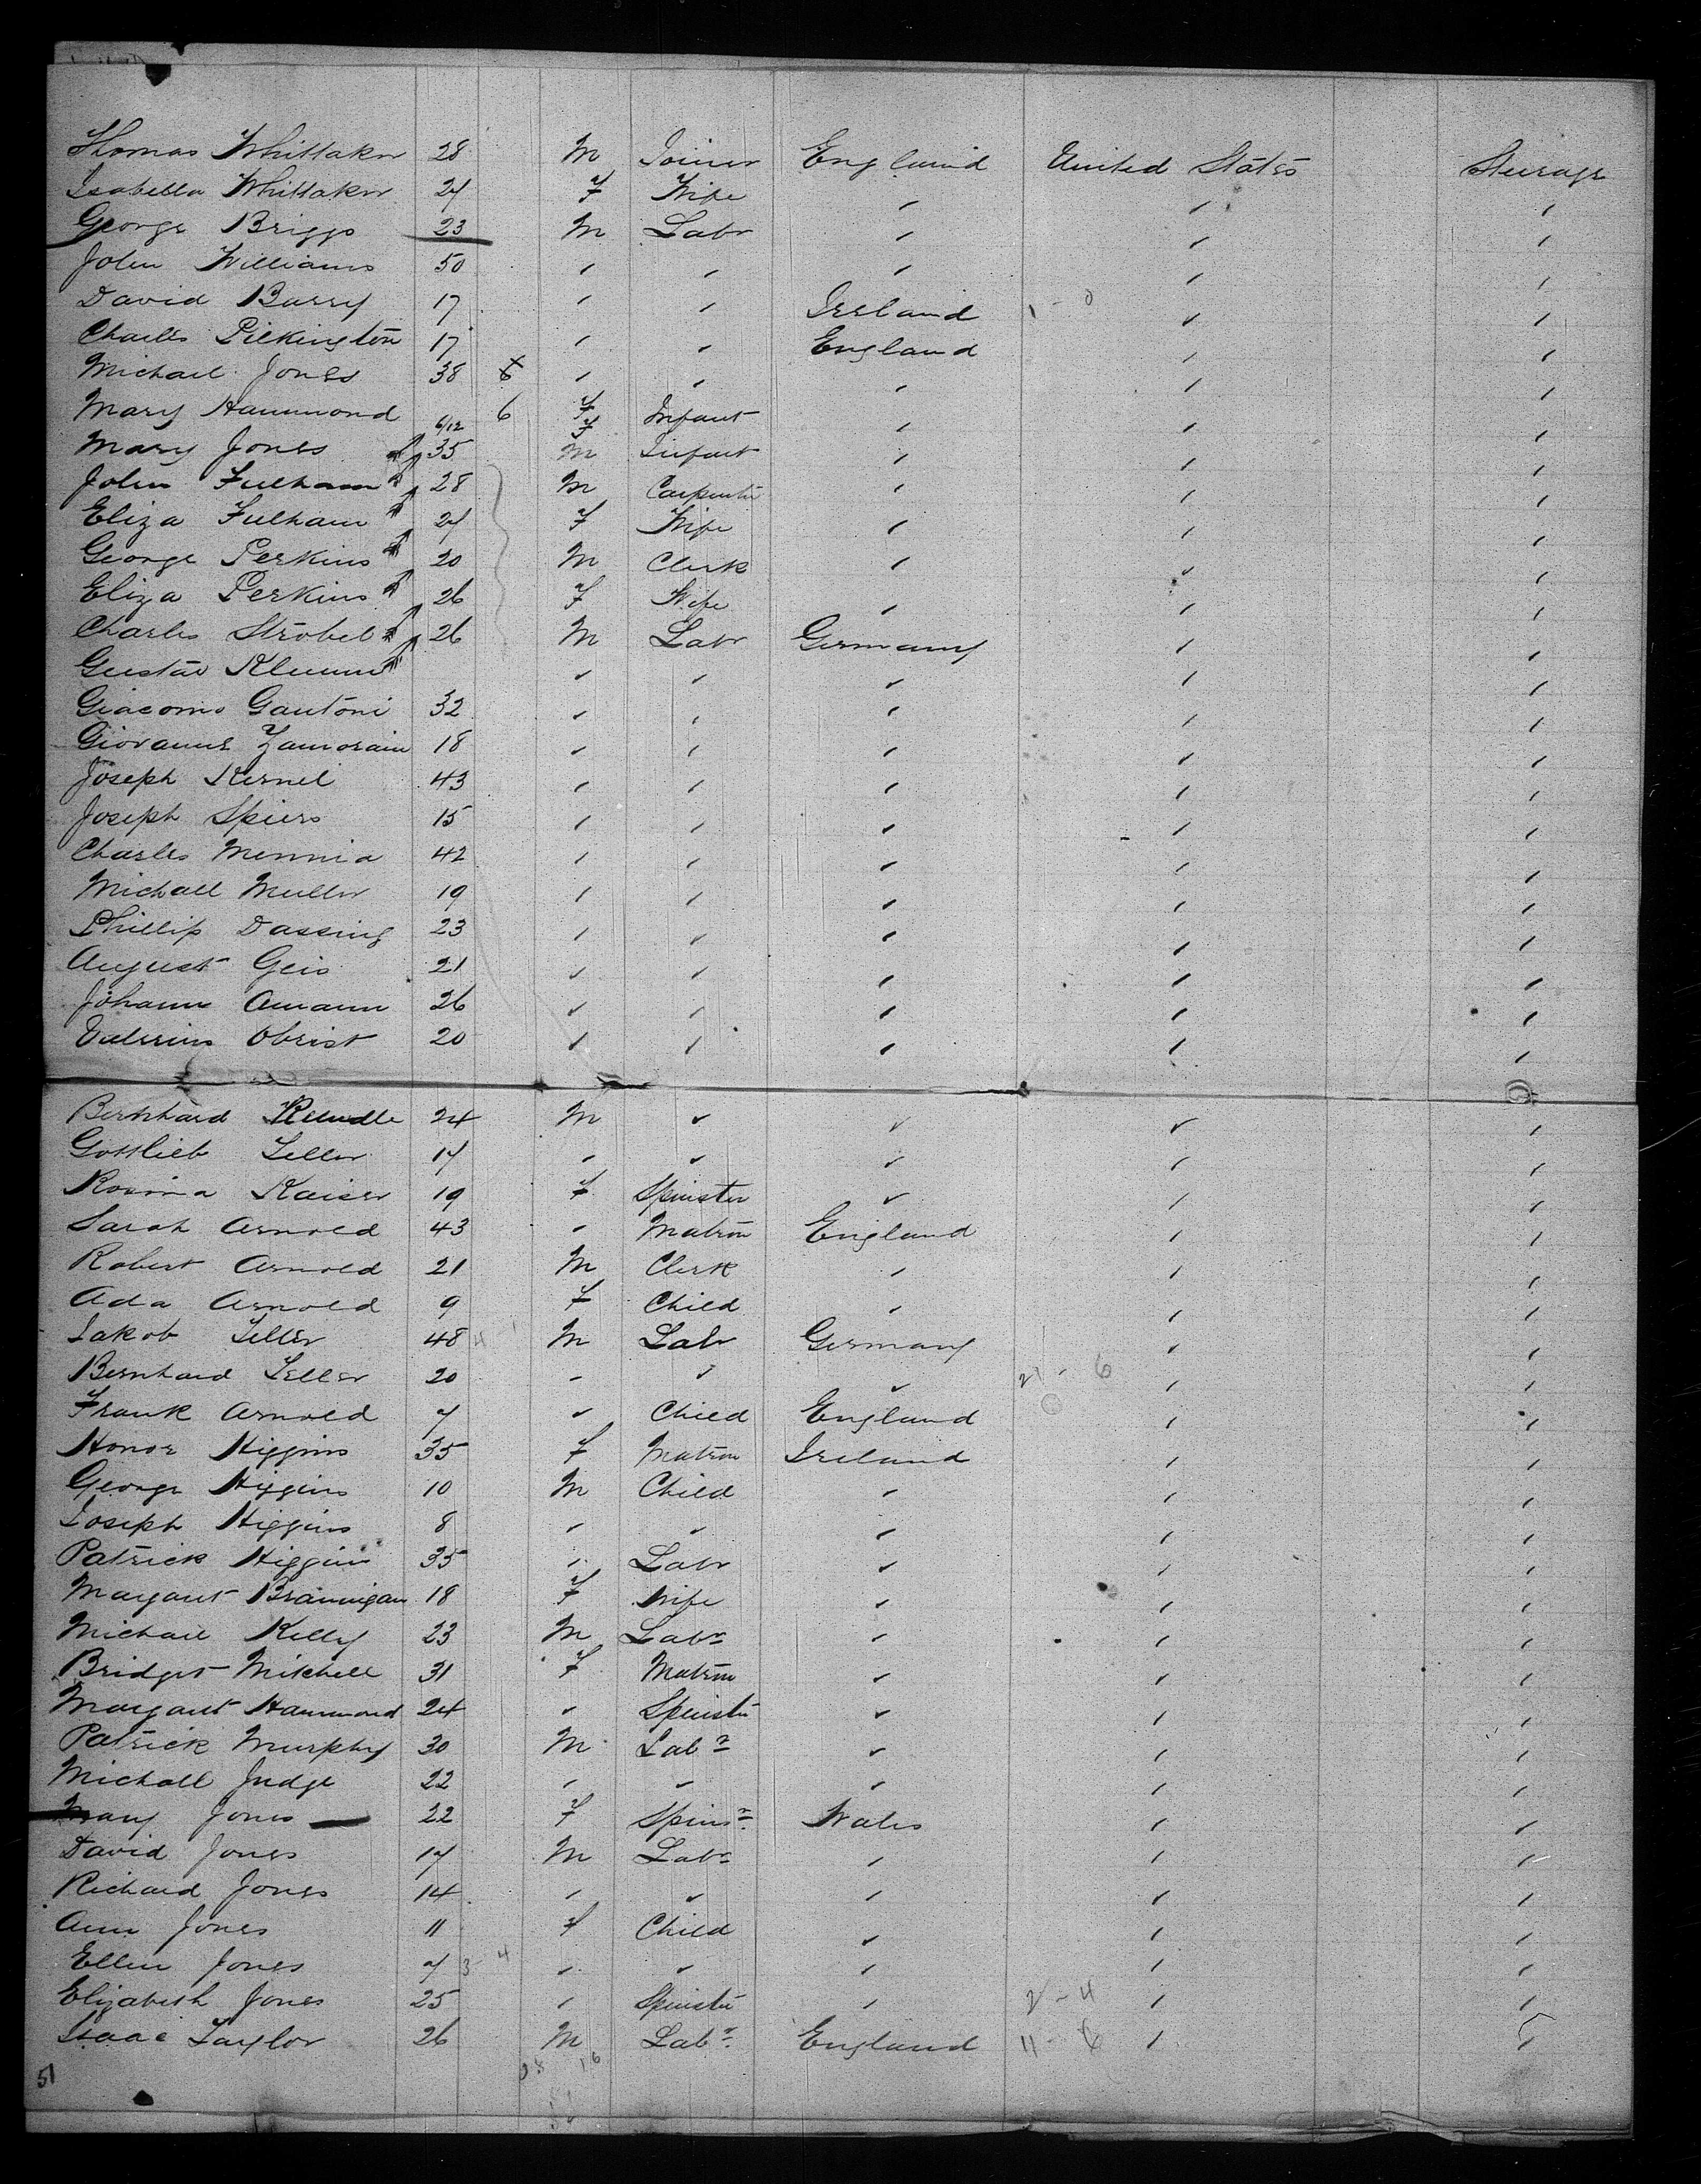 Thomas Whittaker 28 M Joiner England United States Steerage
Isabella Whittaker 24 F Wife " " "
George Briggs 23 M Labr " " "
John Williams 50 " " " " "
David Barry 17 " " Ireland " "
Charles Pilkington 17 " " England " "
Michael Jones 38 " " " " "
Mary Hammond 6/12 6 F Infant " " "
Mary Jones 35 F M Infant " " "
John Fulham 28 M Carpenter " " "
Eliza Fulham 24 F Wife " " "
George Perkins 20 M Clerk " " "
Eliza Perkins 26 F Wife " " "
Charles Strobel 26 M Labr Germany " "
Gustav " " " " "
Giacomo Gantoni 32 " " " " "
18 " " " " "
Joseph Kernel 43 " " " " "
Joseph Spiers 15 " " " " "
Charles Mennia 42 " " " " "
Michall Muller 19 " " " " "
Phillip Dassing 23 " " " " "
August Geis 21 " " " " "
Johann Amann 26 " " " " "
Valerius Obrist 20 " " " " "
Bernhard 24 M " " " "
Gottlieb Zeller 17 " " " " "
Rosina Kaiser 19 F Spinster " " "
Sarah Arnold 43 " Matron England " "
Robert Arnold 21 M Clerk " " "
Ada Arnold 9 F Child " " "
Jakob Zeller 48 M Labr Germany " "
Bernhard Zeller 20 " " " " "
Frank Arnold 7 " Child England " "
Honor Higgins 35 F Matron Ireland " "
George Higgins 10 M Child " " "
Joseph Higgins 8 " " " " "
Patrick Higgins 35 " Labr " " "
Margaret Brannigan 18 F Wife " " "
Michael Kelly 23 M Labr " " "
Bridget Mitchell 31 F Matron " " "
Margaret Hammond 24 " Spinster " " "
Patrick Murphy 30 M Labr " " "
Michall Judge 22 " " " " "
Mary Jones 22 F Spinr Wales " "
David Jones 17 M Labr " " "
Richard Jones 14 " " " " "
Ann Jones 11 F Child " " "
Ellen Jones 7 " " " " "
Elizabeth Jones 25 " Spinster " 2-4 " "
Isaac Taylor 26 M Labr England 11-6 " "
51